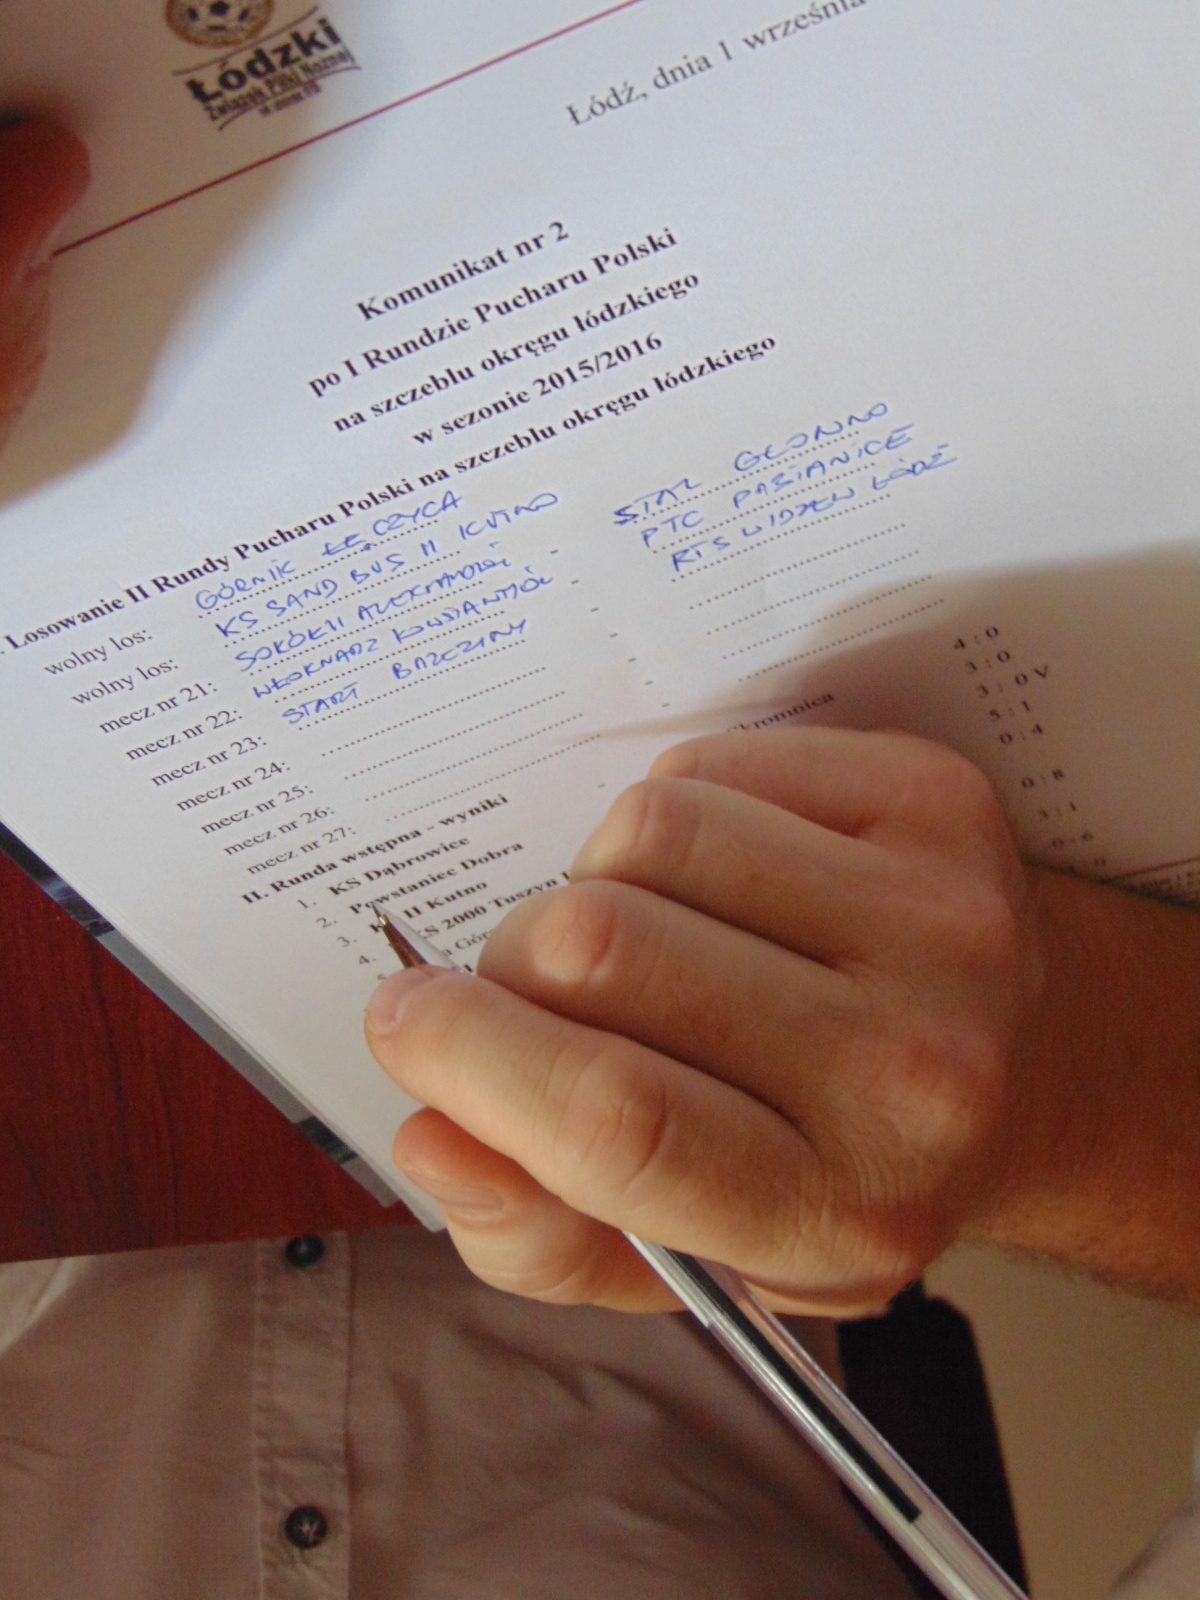 Łódzki
Związek Piłki Nożnej
Łódź, dnia 1 września
Komunikat nr 2
po I Rundzie Pucharu Polski
na szczeblu okręgu łódzkiego
w sezonie 2015/2016
Losowanie II Rundy Pucharu Polski na szczeblu okręgu łódzkiego
wolny los: GÓRNIK ŁĘCZYCA
wolny los: KS SAND BUS II KUTNO
mecz nr 21: SOKÓŁ II ALEKSANDRÓW - STAL GŁOWNO
mecz nr 22: WŁÓKNIARZ KONSTANTYNÓW - PTC PABIANICE
mecz nr 23: START BRZEZINY - RTS WIDZEW ŁÓDŹ
mecz nr 24: -
mecz nr 25: -
mecz nr 26:
mecz nr 27:
II. Runda wstępna - wyniki
1. KS Dąbrowice - Skromnica 4:0
2. Powstaniec Dobra 3:0
3. II Kutno 3:0V
4. KS 2000 Tuszyn 5:1
5. Gór 0:4
0:8
3:1
0:6